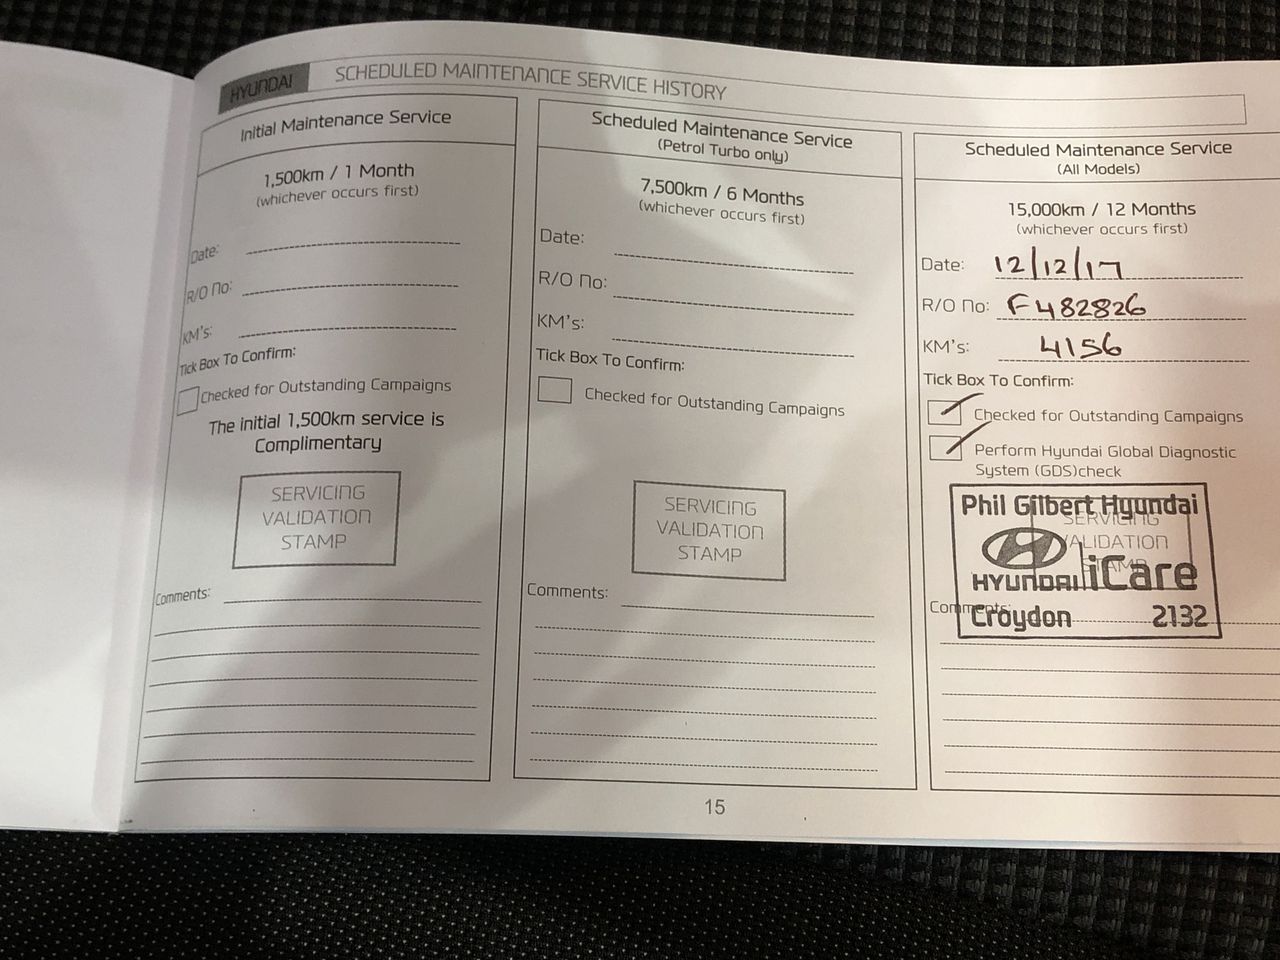 HYUNDAI SCHEDULED MAINTENANCE SERVICE HISTORY
Initial Maintenance Service
1,500km / 1 Month
(whichever occurs first)
Date:
R/O No:
KM's:
Tick Box To Confirm:
Checked for Outstanding Campaigns
The initial 1,500km service is
Complimentary
SERVICING
VALIDATION
STAMP
Comments:
Scheduled Maintenance Service
(Petrol Turbo only)
7,500km / 6 Months
(whichever occurs first)
Date:
R/O No:
KM's:
Tick Box To Confirm:
Checked for Outstanding Campaigns
SERVICING
VALIDATION
STAMP
Comments:
Scheduled Maintenance Service
(All Models)
15,000km / 12 Months
(whichever occurs first)
Date: 12/12/17
R/O No: F482826
KM's: 4156
Tick Box To Confirm:
Checked for Outstanding Campaigns
Perform Hyundai Global Diagnostic
System (GDS)check
Phil Gilbert Hyundai
SERVICING
VALIDATION
STAMP
HYUNDAI iCare
Comments:
Croydon 2132
15